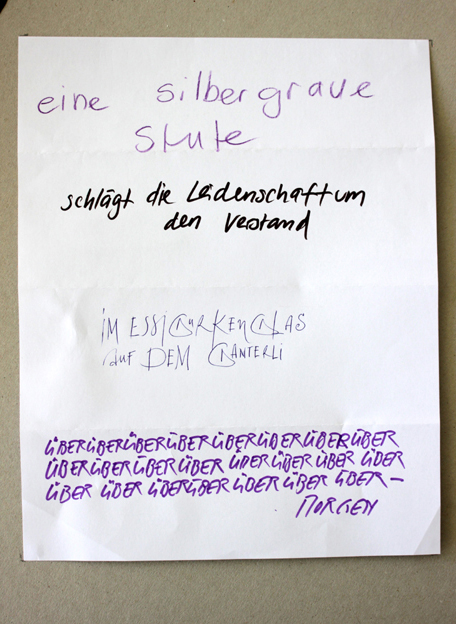 eine silbergraue
Stute
schlägt die Leidenschaft um
den Verstand
IM ESSIGURKENGLAS
AUF DEM GANTERLI
ÜBERÜBERÜBERÜBERÜBERÜBERÜBERÜBER
ÜBERÜBERÜBERÜBER ÜBERÜBER ÜBER ÜBER
ÜBER ÜBER ÜBERÜBER ÜBER ÜBER ÜBER–
MORGEN